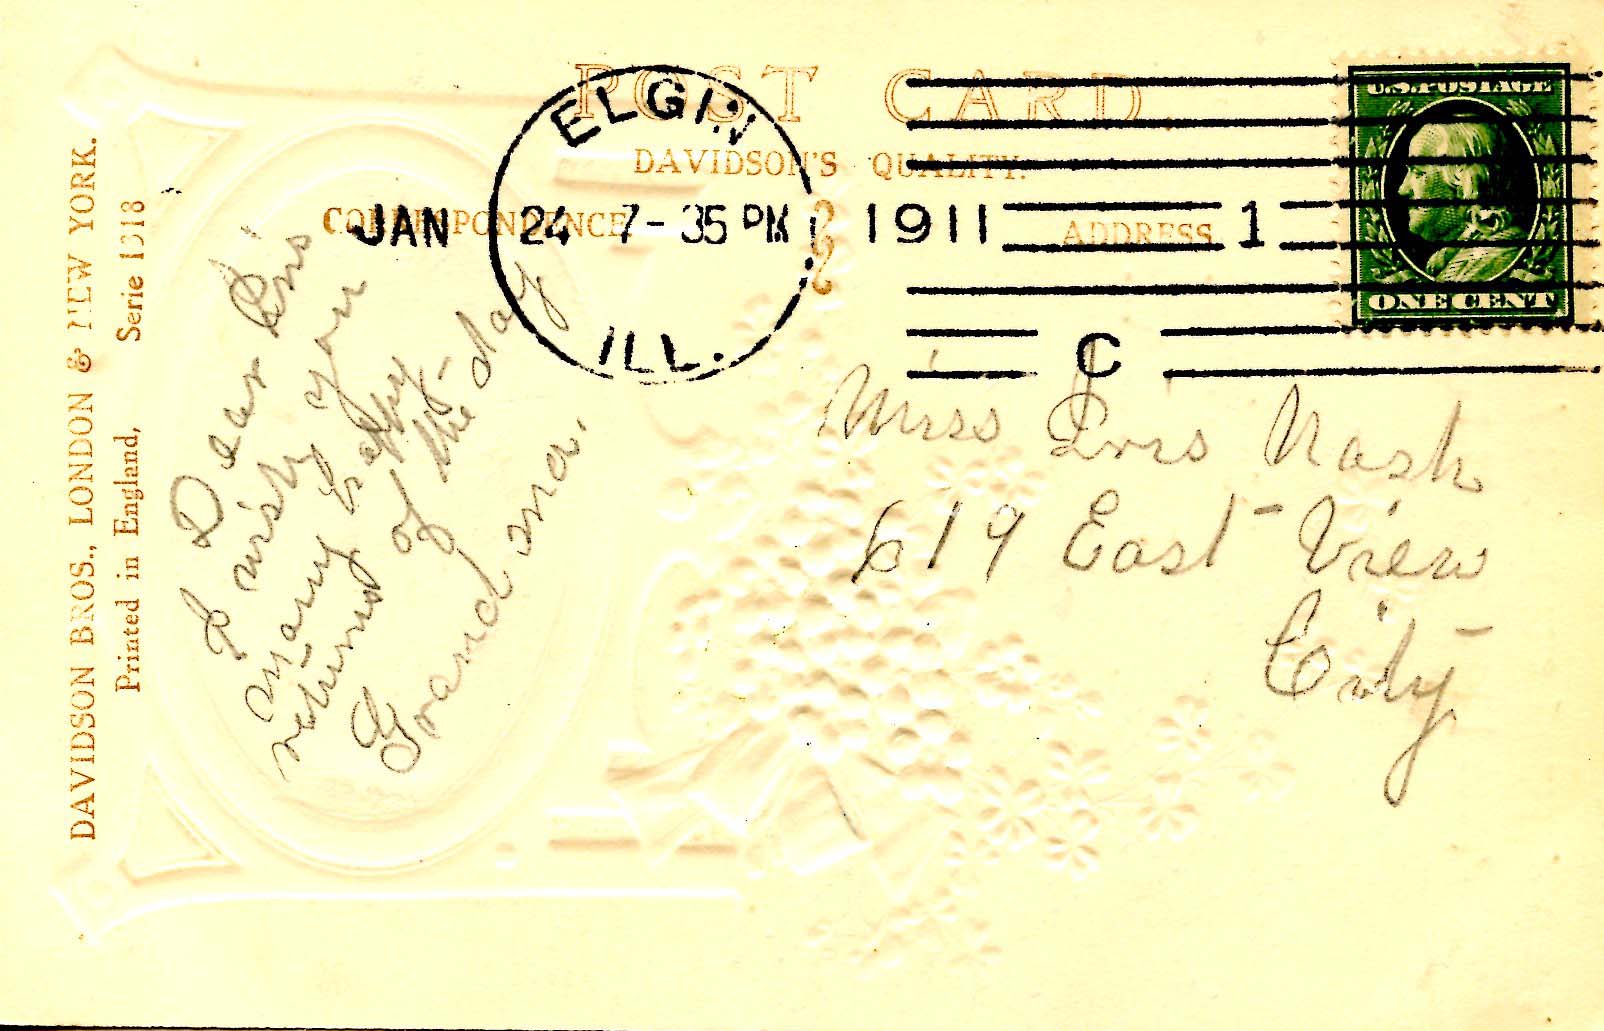 POST CARD
DAVIDSON'S QUALITY.
CORRESPONDENCE
ADDRESS
ELGIN
JAN 24 7-35 PM 1911
ILL.
1
C
U.S. POSTAGE
ONE CENT
DAVIDSON BROS., LONDON & NEW YORK.
Printed in England, Serie 1318
Dear Lois
I wish you
many happy
returns of the day
Grandma.
Miss Lois Nash
619 East View
City